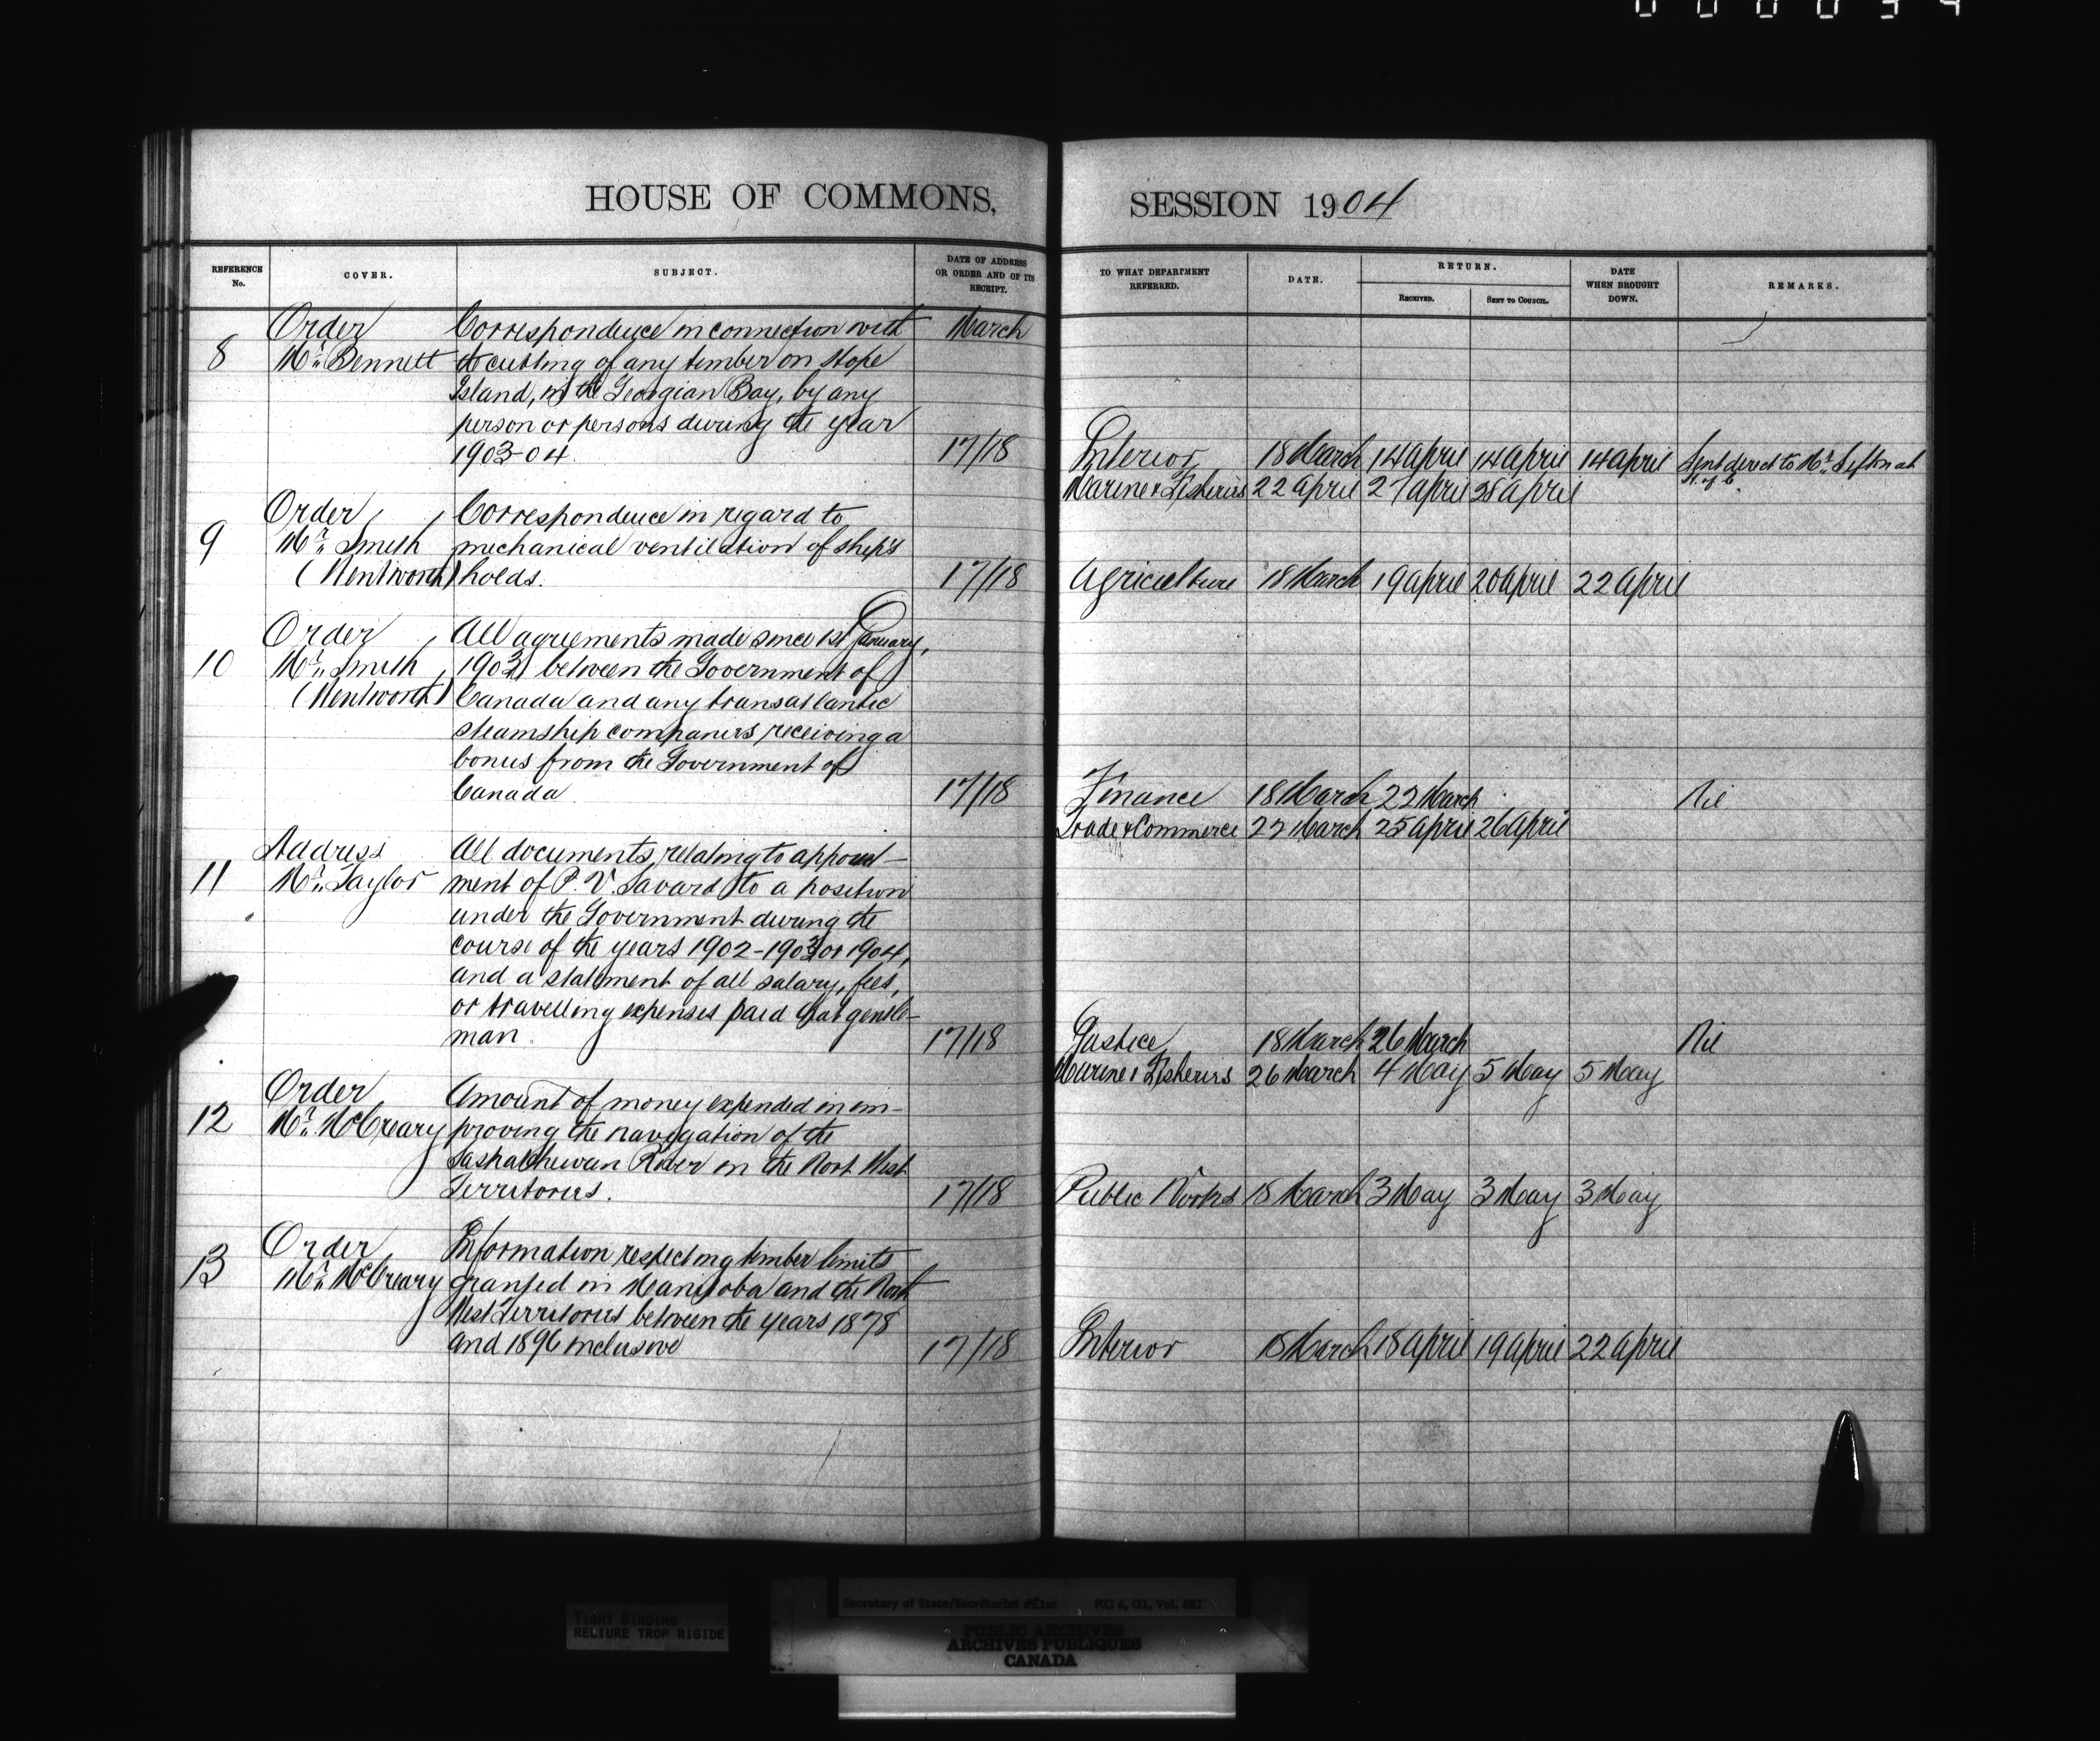 HOUSE OF COMMONS,
REFERENCE No.
COVER.
SUBJECT.
DATE OF ADDRESS OR ORDER AND OF ITS RECEIPT.
8
Order
Mr. Bennett
Correspondence in connection with
to cutting of any timber on Hope
Island, in the Georgian Bay, by any
person or persons during the year
1903-04.
March
17/18
9
Order
Mr. Smith
(Wentworth)
Correspondence in regard to
mechanical ventilation of ship's
holds.
17/18
10
Order
Mr. Smith
(Wentworth)
All agreements made since 1st January,
1903, between the Government of
Canada and any transatlantic
steamship companies receiving a
bonus from the Government of
Canada
17/18
11
Address
Mr. Taylor
All documents, relating to appoint-
ment of P. V. Savard to a position
under the Government during the
course of the years 1902-1903 or 1904,
and a statement of all salary, fees,
or travelling expenses paid that gentle-
man.
17/18
12
Order
Mr. McCreary
Amount of money expended in im-
proving the navigation of the
Saskatchewan River in the Nort West
Territories.
17/18
13
Order
Mr. McCreary
Information respecting timber limits
granted in Manitoba and the North
West Territories between the years 1878
and 1896 inclusive
17/18
SESSION 1904
TO WHAT DEPARTMENT REFERRED.
DATE.
RETURN.
RECEIVED.
SENT TO COUNCIL.
DATE WHEN BROUGHT DOWN.
REMARKS.
Interior 18 March 14 April 14 April 14 April Sent direct to Mr. Sifton at
H. of C.
Marine & Fisheries 22 April 27 April 28 April
Agriculture 18 March 19 April 20 April 22 April
Finance 18 March 22 March Nil
Trade & Commerce 22 March 25 April 26 April
Justice 18 March 26 March Nil
Marine & Fisheries 26 March 4 May 5 May 5 May
Public Works 18 March 3 May 3 May 3 May
Interior 18 March 18 April 19 April 22 April
TIGHT BINDING
RELIURE TROP RIGIDE
Secretary of State/Secrétariat d'État RG 6, G1, Vol. 681
PUBLIC ARCHIVES
ARCHIVES PUBLIQUES
CANADA